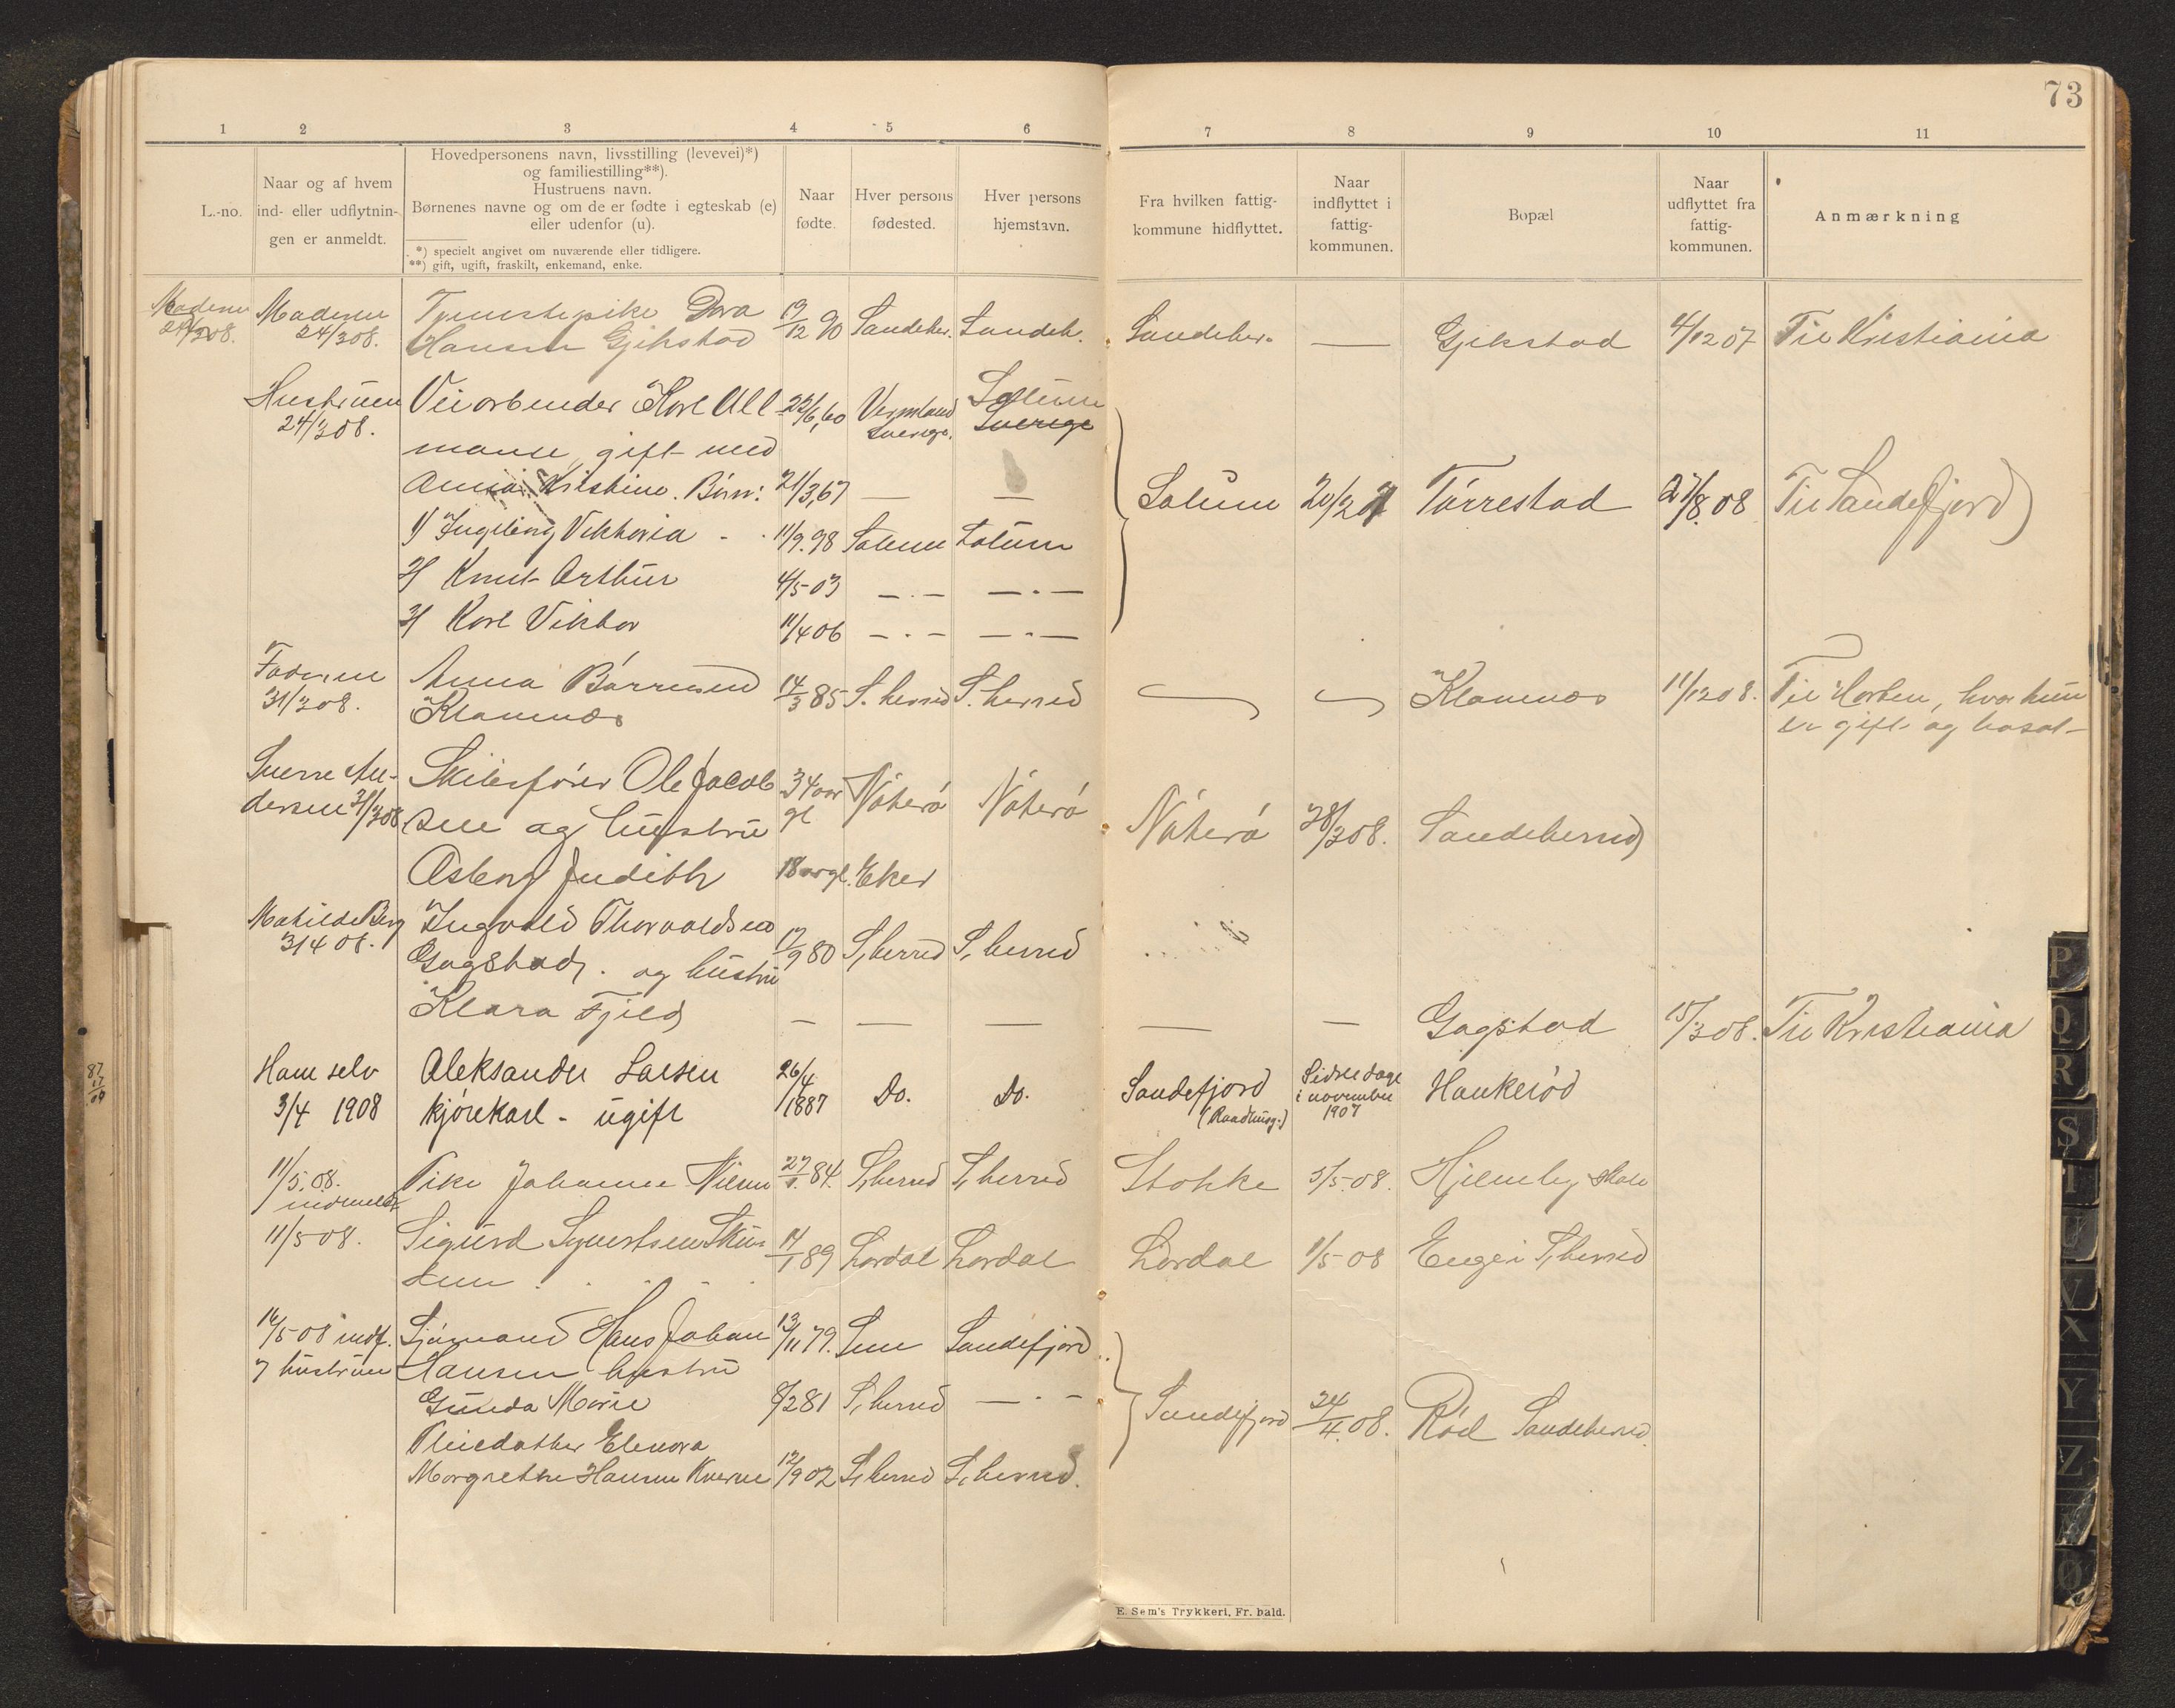 73
1 2 3 4 5 6 7 8 9 10 11
L.-no.
Naar og af hvem
ind- eller udflytnin-
gen er anmeldt.
Hovedpersonens navn, livsstilling (levevei)*)
og familiestilling**).
Hustruens navn.
Børnenes navne og om de er fødte i egteskab (e)
eller udenfor (u).
*) specielt angivet om nuværende eller tidligere.
**) gift, ugift, fraskilt, enkemand, enke.
Naar
fødte.
Hver persons
fødested.
Hver persons
hjemstavn.
Fra hvilken fattig-
kommune hidflyttet.
Naar
indflyttet i
fattig-
kommunen.
Bopæl
Naar
udflyttet fra
fattig-
kommunen.
Anmærkning
Moderen Moderen Tjenestepike Dora 19/12 90 Sandeher. Sandeh. Sandeher. — Gjekstad 4/12 07 Til Kristiania
24/3 08. 24/3 08. Hansen Gjekstad
Hustruen Veiarbeider Karl All 22/6,60 Vermland Solum
24/3 08. Sverige. Sverige
manne, gift med
Anna Kristine. Børn: 21/3,67 — — Solum 20/2 07 Tørrestad 27/8.08 Til Sandefjord
1) Ingeborg Viktoria - 11/9.98 Solum Solum
2) Knut Arthur 4/5-03 —.— —.—
3) Karl Viktor 11/4 06 —.— —.—
Faderen Anna Barmend 14/3 85 S. herred S. herred Klavenæs 11/12 08. Til Horten, hvor hun
31/3 08. Klavenæs er gift og bosat
Sverre An- Skibsfører Ole Jacob 34 aar Nøterø Nøterø Nøterø 28/3 08. Sandeherred
dersen 31/3 08 sen og hustru gl
Asborg Judith 18 aar gl. Eker
Mathilde Berg Ingvald Thorvaldsen 17/9 80 S, herred S, herred
3/4 08. Gogstad. og hustru
Klara Fjeld — — — — — Gogstad 15/3 08. Til Kristiania
Ham selv Aleksander Larsen 26/4 1887 Do. Do. Sandefjord Sidste dage Haukerød
3/4 1908 kjørekarl - ugift (Raadhusg.) i november
1907
11/5.08. Pike Johanne Nilsen 84. S, herred S, herred Stokke 5/5.08. Hjemby skole
indmeldt
11/5 08. Sigurd Syvertsen 89 Lardal Lardal Lardal 1/5-08 Enge i S, herred
14/5 08 indf. Sjømand Hans Johan 13/11 79. Sem Sandefjord
7 hustruen Hansen hustru
Gunda Marie 8/2 81 S, herred —.— Sandefjord 24/4.08. Rød Sandeherred
Pleiedatter Elenora
Margrethe Hansen 12/9 02 S, herred S, herred.
E. Sem's Trykkeri, Fr. hald.
P
Q
R
S
T
U
V
X
Y
Z
Æ
Ø